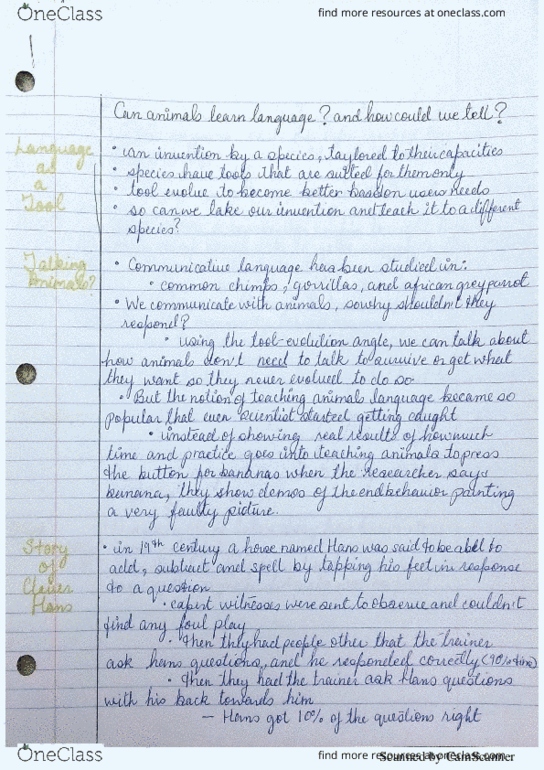 OneClass
find more resources at oneclass.com
Can animals learn language? and how could we tell?
Language
as
a
Tool
• an invention by a species, taylored to their capacities
• species have tools that are suited for them only
• tool evolve to become better based on users needs
• so can we take our invention and teach it to a different
species?
Talking
Animals?
• Communicative language has been studied in:
• common chimps, gorrillas, and african grey parrot
• We communicate with animals, so why shouldn't they
respond?
• using the tool-evolution angle, we can talk about
how animals don't need to talk to survive or get what
they want so they never evolved to do so
• But the notion of teaching animals language became so
popular that even scientist started getting caught
• instead of showing real results of how much
time and practice goes into teaching animals to press
the button for bananas when the researcher says
banana, they show demos of the end behavior painting
a very faulty picture.
Story
of
Clever
Hans
• in 19th century a horse named Hans was said to be able to
add, subtract and spell by tapping his feet in response
to a question
• expert witnesses were sent to observe and couldn't
find any foul play
• then they had people other that the trainer
ask hans questions, and he responded correctly (90% time)
• then they had the trainer ask Hans questions
with his back towards him
– Hans got 10% of the questions right
OneClass
find more resources at oneclass.com
Scanned by CamScanner